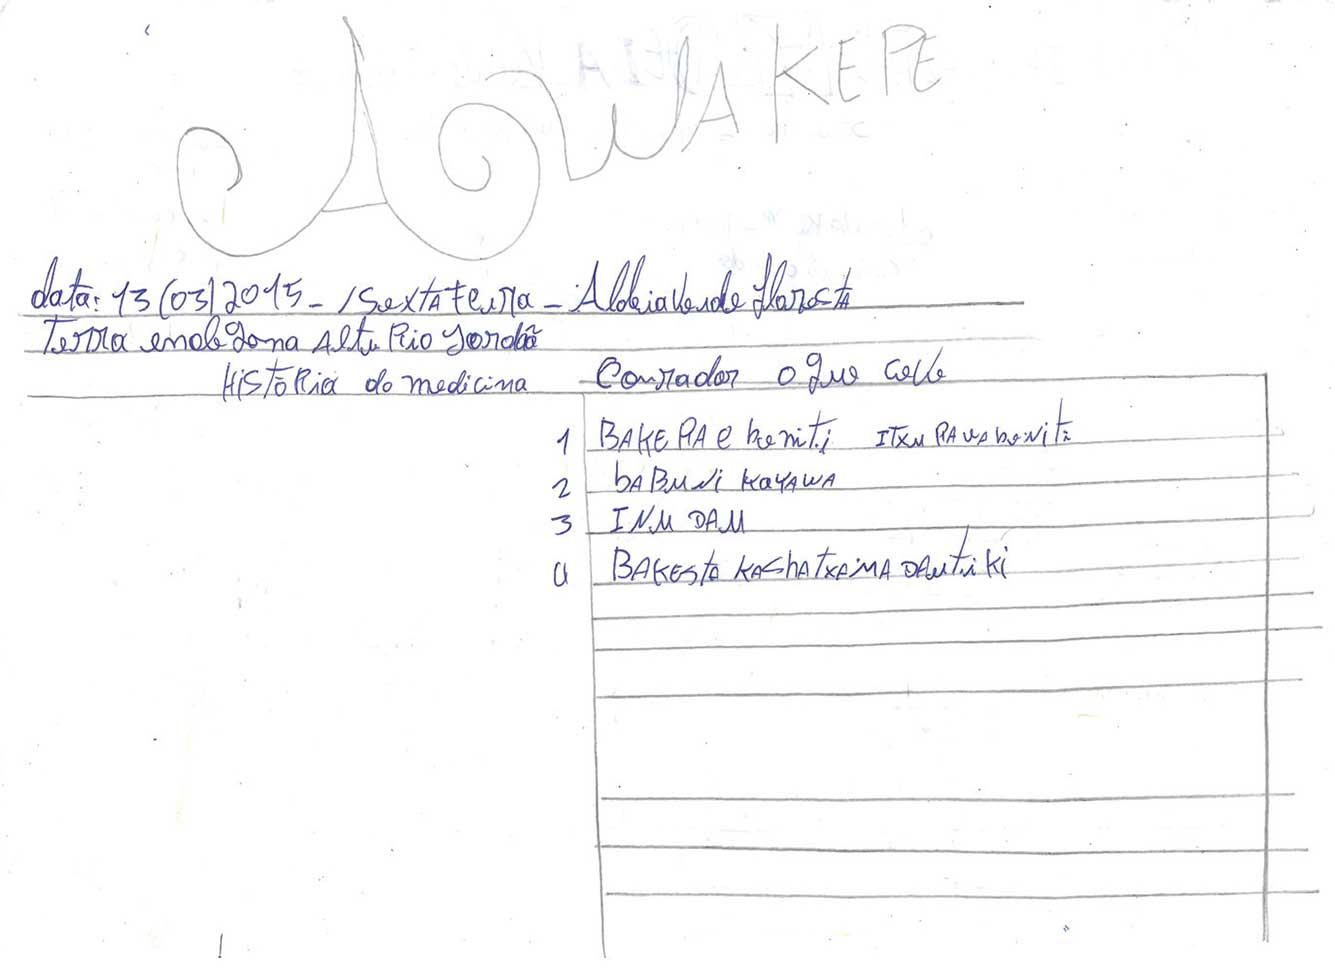 AWAKEPE
data: 13(03)2015 - Sexta feira - Aldeia Verde Floresta
Terra
Alto Rio Jordão
HISTÓRIA do medicina
O que
1 BAKE PAE beniti ITXU PAUA beniti
2 bABUNi KAYAWA
3 INU DAU
4 BAKESTA KASHATXAIMA DAUTIKI